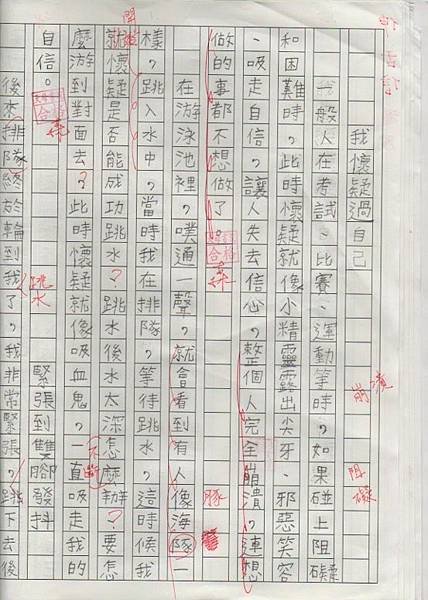 我懷疑過自己
一般人在考試、比賽、運動等時，如果碰上阻礙
崩潰
阻礙
和困難時，此時懷疑就像小精靈露出尖牙、邪惡笑容
、吸走自信，讓人失去信心，整個人完全崩潰，連想
做的事都不想做了。
合格
豚
在游泳池裡，噗通一聲，就會看到有人像海豚一
樣，跳入水中，當時我在排隊，等待跳水，這時候我
就懷疑是否能成功跳水？跳水後水太深怎麼辦？要怎
麼游到對面去？此時懷疑就像吸血鬼，一直吸走我的
自信。
合格
跳水
緊張到雙腳發抖
後來排隊終於輪到我了，我非常緊張，跳下去後